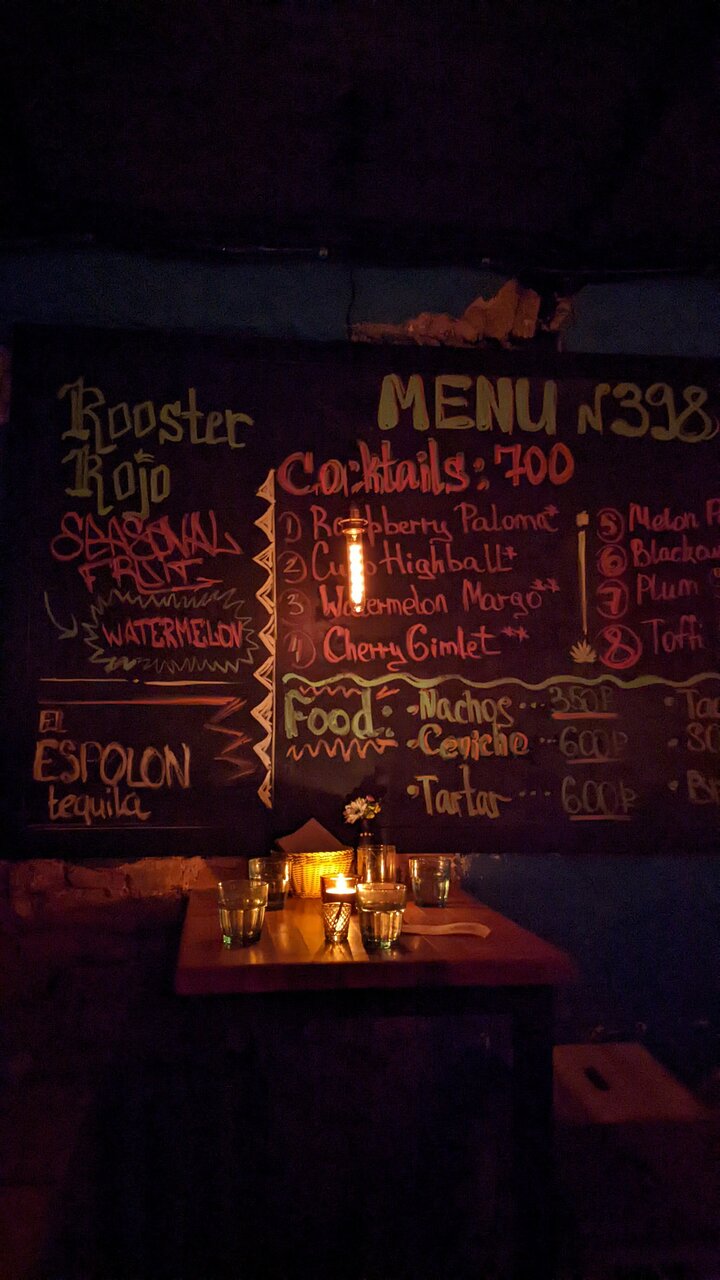 Rooster
Rojo
SEASONAL
FRUIT
WATERMELON
EL
ESPOLON
tequila
MENU N398
Cocktails: 700
1) Raspberry Paloma*
2) Highball*
3 Watermelon Margo**
4) Cherry Gimlet**
5 Melon
6
7 Plum
8 Toffi
Food: • Nachos ... 350₽
• Ceviche ... 600₽
• Tartar ... 600₽